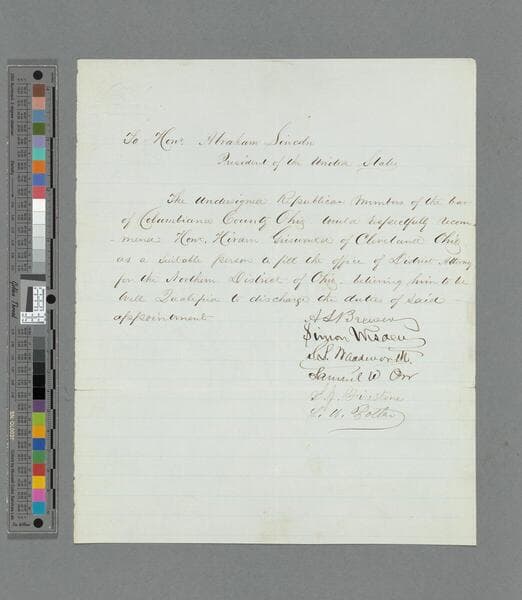 To Hon. Abraham Lincoln
President of the United States
The undersigned Republican Members of the bar
of Columbiana County Ohio would respectfully recom
-mend Hon. Hiram Griswold of Cleveland Ohio
as a suitable person to fill the office of District Attorney
for the Northern District of Ohio believing him to be
Well Qualified to discharge the duties of said
appointment
A L Brewer
Simon Wisden
S. L. Wadsworth
Samuel W. Orr
Firestone
Potter